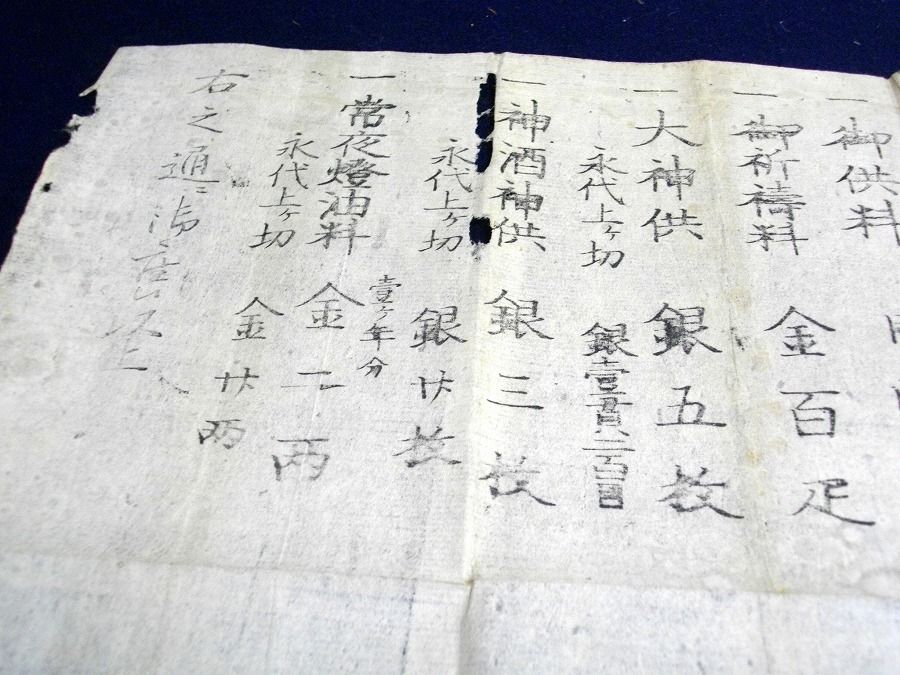 一 御供料
一 御祈祷料 金百疋
一 大神供 銀五枚
永代上ヶ切 銀壹貫
一 神酒神供 銀三枚
永代上ヶ切 銀廿枚
一 常夜燈油料 壹ヶ年分 金二両
永代上ヶ切 金廿両
右之通ニ御座候